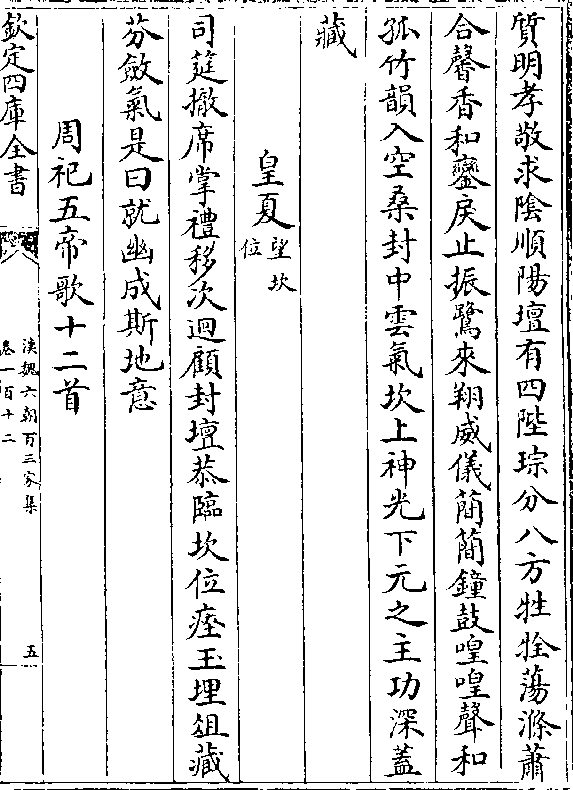 質明孝敬求陰順陽壇有四陛琮分八方牲牷蕩滌蕭
合馨香和鑾戾止振鷺來翔威儀簡簡鐘鼓喤喤聲和
孤竹韻入空桑封中雲氣坎上神光下元之主功深蓋
藏
皇夏望坎位
司筵撤席掌禮移次迴顧封壇恭臨坎位瘞玉埋俎藏
芬斂氣是曰就幽成斯地意
周祀五帝歌十二首
欽定四庫全書
漢魏六朝百三家集
卷一百十二
五